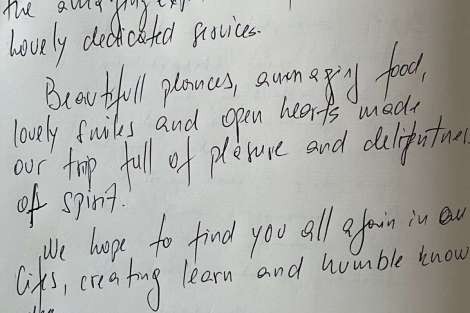 the amazing exp
lovely dedicated services.
Beautifull plances, ammazing food,
lovely smiles and open hearts made
our trip full of pleasure and delightnes
of spirit.
We hope to find you all again in ou
lifes, creating learn and humble know